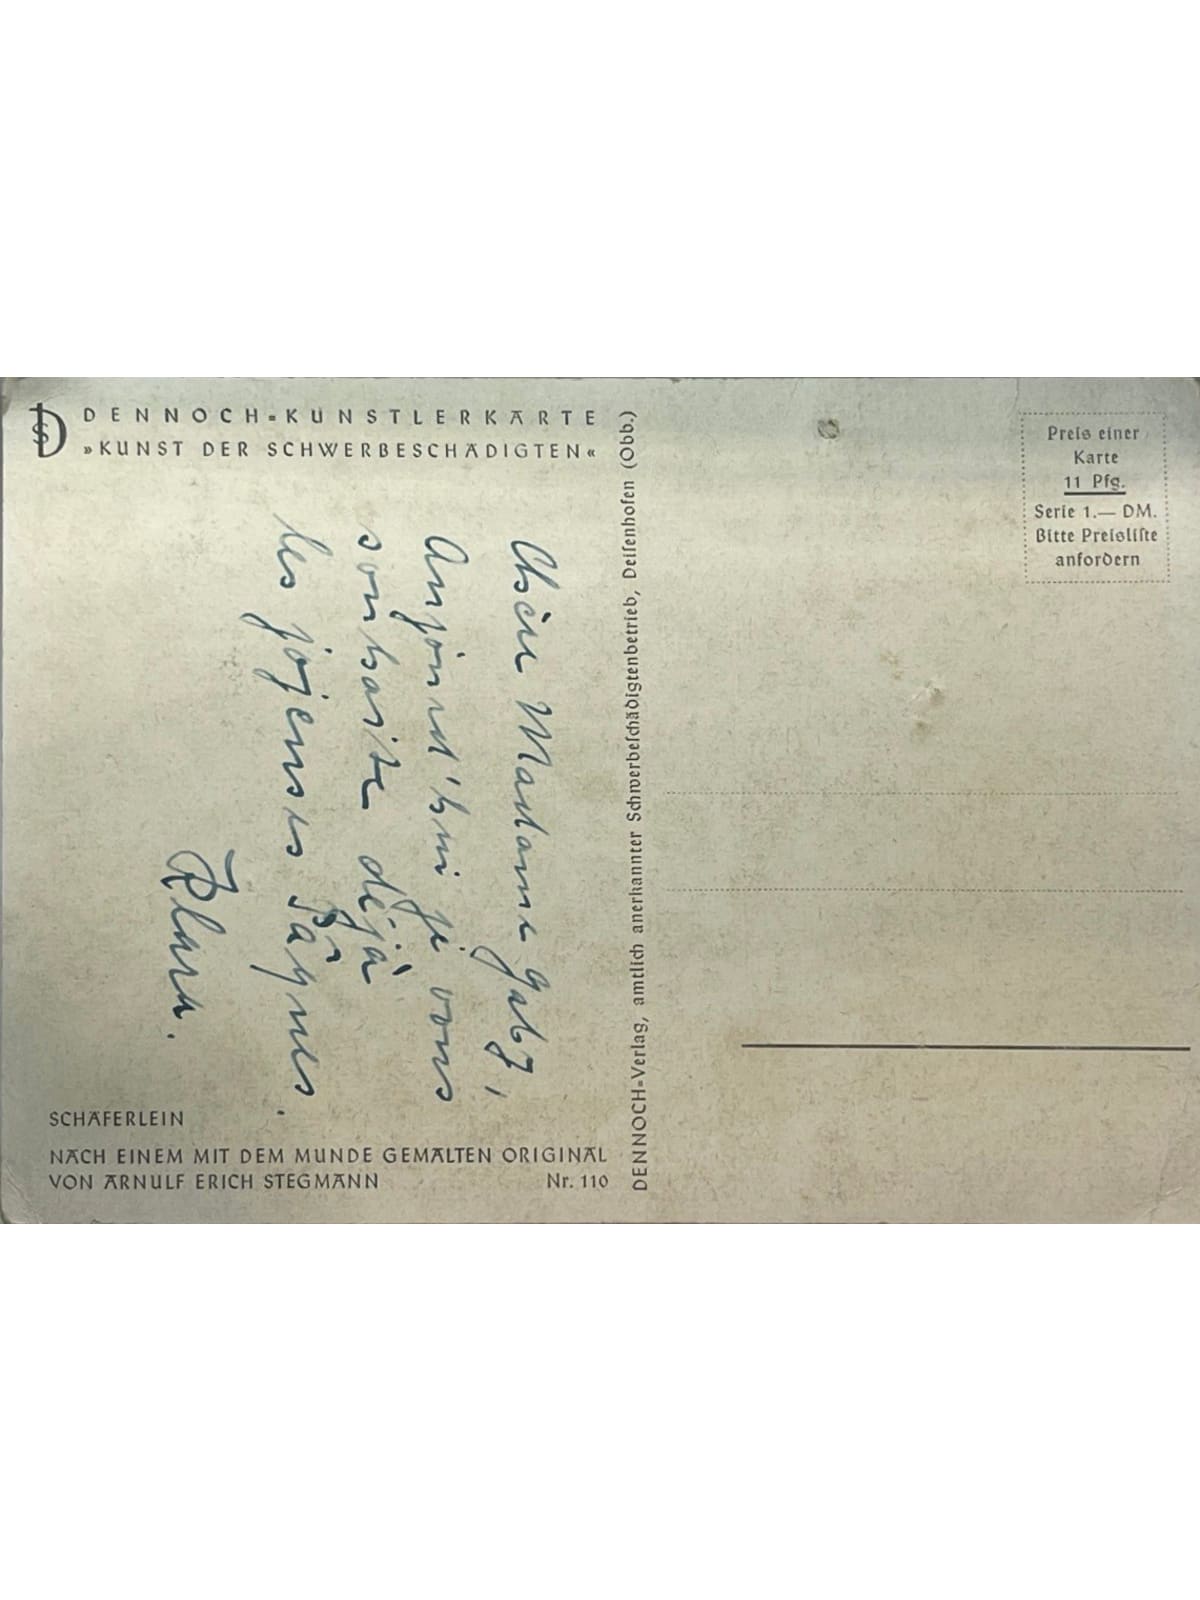 DENNOCH=KÜNSTLERKARTE
»KUNST DER SCHWERBESCHÄDIGTEN«
Chère Madame Gaby,
Aujourd'hui je vous
souhaite déjà
les joyeuses Pâques.
Klara.
SCHÄFERLEIN
NACH EINEM MIT DEM MUNDE GEMALTEN ORIGINAL
VON ARNULF ERICH STEGMANN Nr. 110
DENNOCH=Verlag, amtlich anerkannter Schwerbeſchädigtenbetrieb, Deiſenhofen (Obb.)
Preis einer
Karte
11 Pfg.
Serie 1.— DM.
Bitte Preisliſte
anfordern